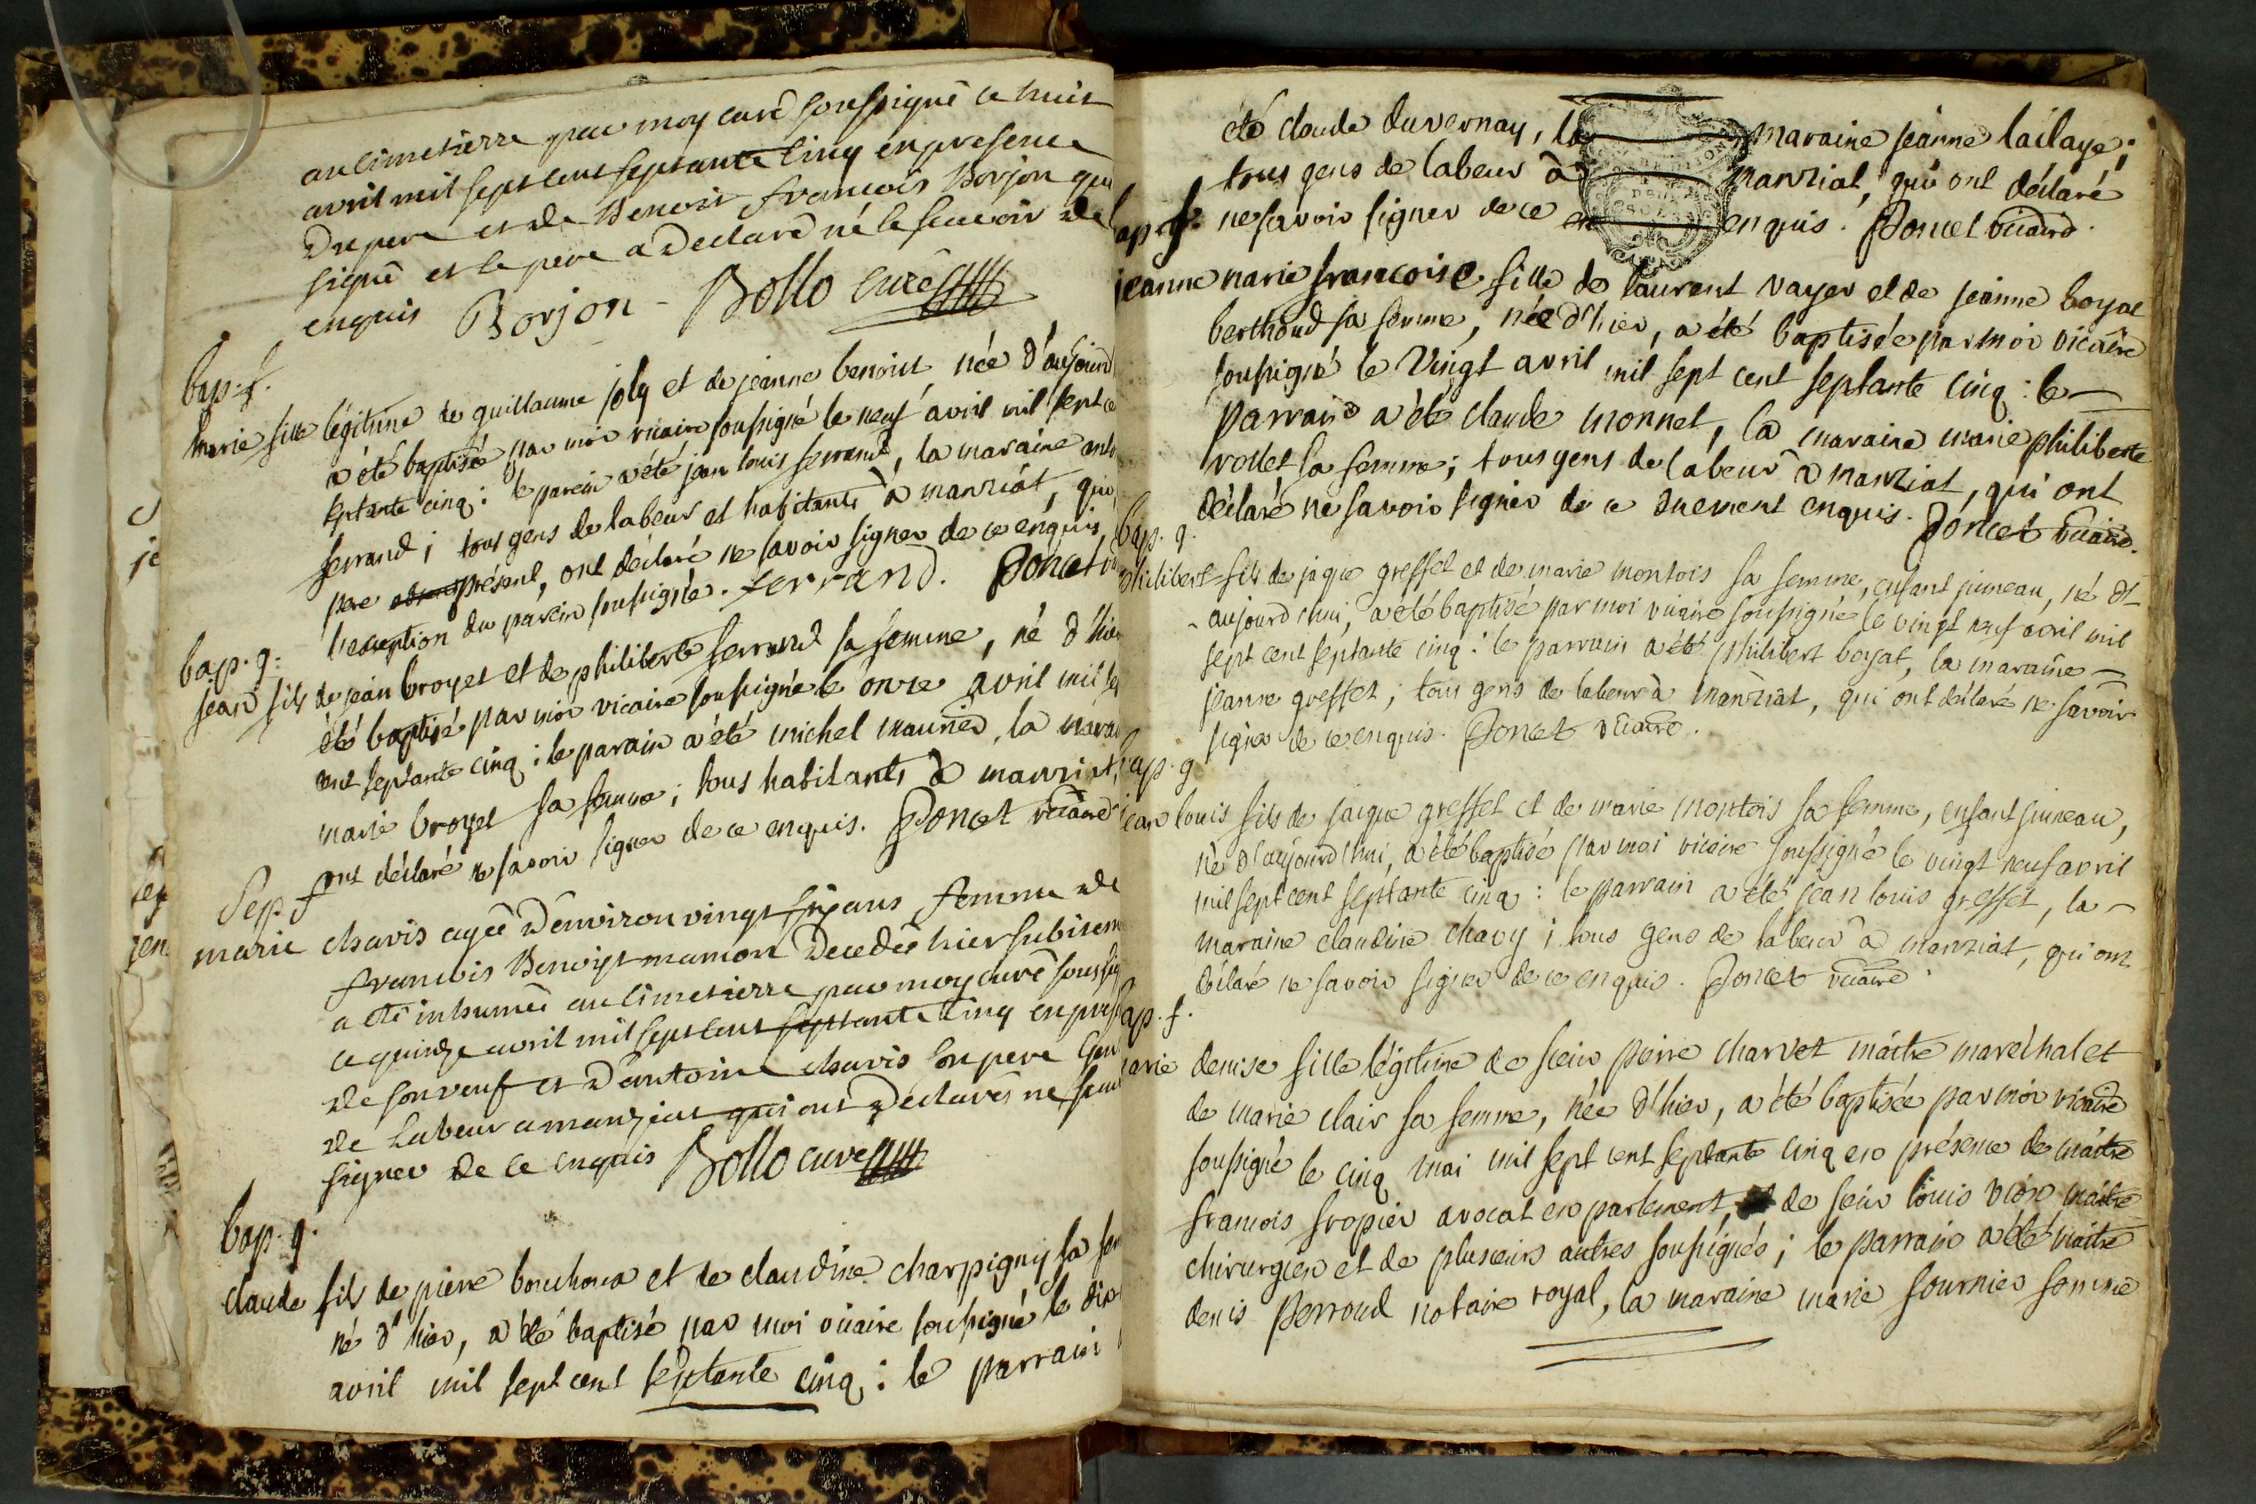 au cimetierre par moy curé soussigné le huit
avril mil sept cent septante cinq en presence
du pere et de Benoit francois Borjon qui
signé et le pere a declaré né le scavoir de
enquis Borjon Bollo curé
bap. f.
marie fille légitime de guillaume joly et de jeanne benoist née d'aujourd
a été baptisée par moi vicaire soussigné le neuf avril mil sept ce
septante cinq : le parein a été jean louis ferrand, la maraine
ferrand ; tous gens de labeur et habitants à manziat, que
pere présent, ont déclaré ne savoir signer de ce enquis,
l'exception du parein soussigné. ferrand. Poncet
bap. g.
jean fils de jean broyer et de philiberte ferrand sa femme, né d'hier
été baptisé par moi vicaire soussigné le onze avril mil
cent septante cinq : le parain a été michel maurier, la
marie broyer sa femme ; tous habitants à manziat,
ont déclaré ne savoir signer de ce enquis. Poncet vicaire
Sep. f
marie chavis agée d'environ vingt six ans femme de
francois Benoist mamon decedée hier subitem
a été inhumée au cimetierre par moy curé soussig
ce quinze avril mil sept cent septante cinq en pres
de son veuf et d'antoine chavis son pere
de labeur a manziat qui ont déclarés ne
signer de ce enquis Bollo curé
bap. g.
claude fils de pierre bouchoux et de claudine charpigny sa fem
né d'hier, a été baptisé par moi vicaire soussigné le dix
avril mil sept cent septante cinq : le parrain
été claude duvernay, la maraine jeanne lailaye ;
tous gens de labeur à manziat, qui ont déclaré
bap. f. ne savoir signer de ce enquis. Poncet vicaire.
jeanne marie francoise fille de laurent vayer et de jeanne boyat
berthoud sa femme, née d'hier, a été baptisée par moi vicaire
soussigné le vingt avril mil sept cent septante cinq : le
parrain a été claude monnet, la maraine marie philiberte
rollet sa femme ; tous gens de labeur à manziat, qui ont
déclaré ne savoir signer de ce duement enquis. Poncet vicaire.
bap. g.
philibert fils de jaque greffet et de marie montois sa femme, enfant jumeau, né d'
aujourd'hui, a été baptisé par moi vicaire soussigné le vingt neuf avril mil
sept cent septante cinq : le parrain a été philibert boyat, la maraine
jeanne greffet ; tous gens de labeur à manziat, qui ont déclaré ne savoir
signer de ce enquis. Poncet vicaire.
bap. g
jean louis fils de jaique greffet et de marie montois sa femme, enfant jumeau,
né d'aujourd'hui, a été baptisé par moi vicaire soussigné le vingt neuf avril
mil sept cent septante cinq : le parrain a été jean louis greffet, la
maraine claudine chavy ; tous gens de labeur à manziat, qui ont
déclaré ne savoir signer de ce enquis. Poncet vicaire
bap. f.
marie denise fille légitime de sieur pierre charvet maitre maréchal et
de marie clair sa femme, née d'hier, a été baptisée par moi vicaire
soussigné le cinq mai mil sept cent septante cinq en présence de maitre
francois fropier avocat en parlement, de sieur louis maitre
chirurgien et de plusieurs autres soussignés ; le parrain a été maitre
denis Perroud notaire royal, la maraine marie fournier femme